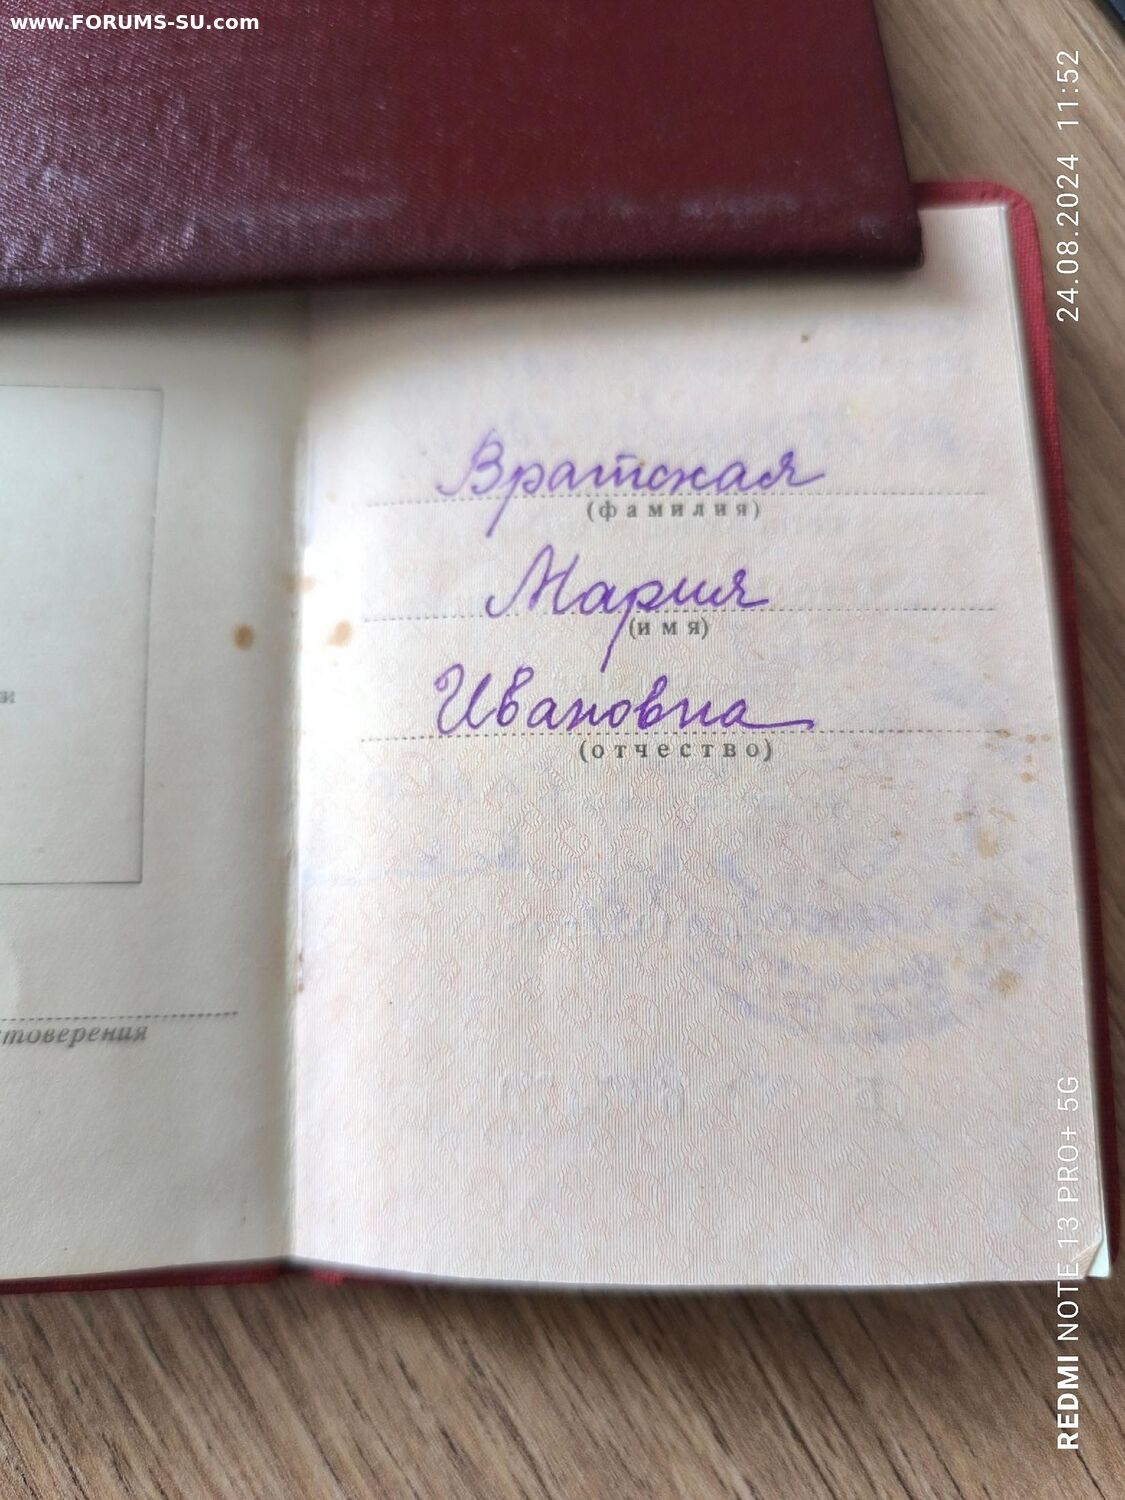 www.FORUMS-SU.com
и
стоверения
Вратская
(фамилия)
Мария
(имя)
Ивановна
(отчество)
24.08.2024 11:52
REDMI NOTE 13 PRO+ 5G